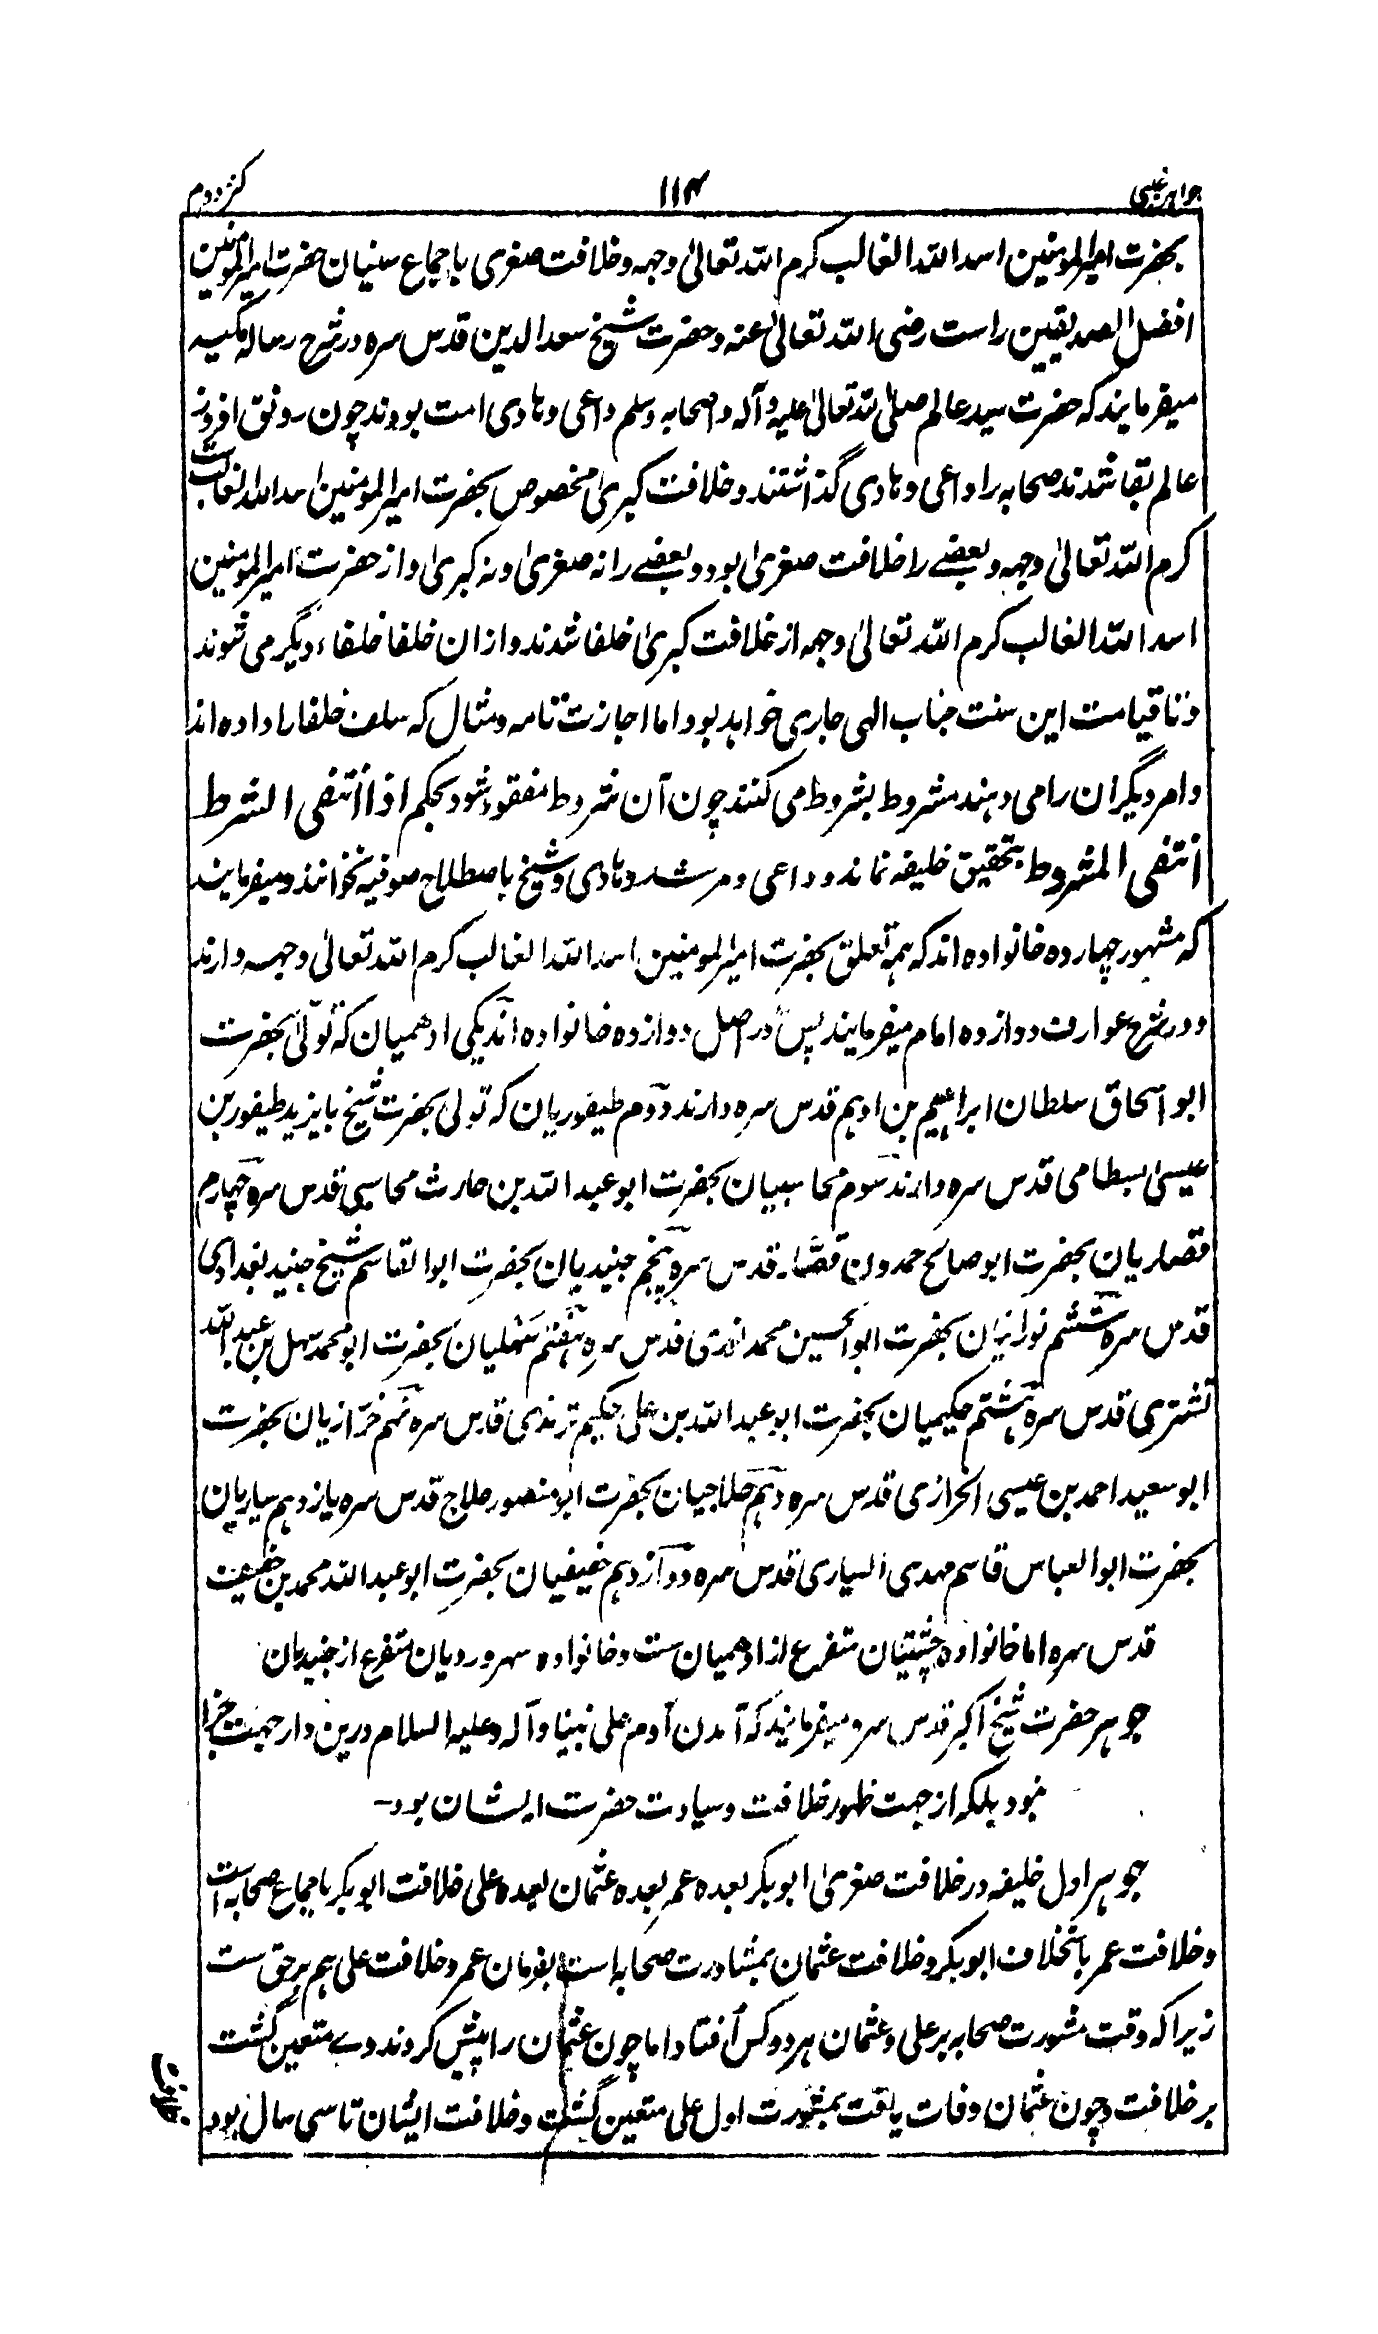 جواہر غیبی ۱۱۴ کنز دوم
بحضرت امیرالمومنین اسد اللہ الغالب کرم اللہ تعالیٰ وجہہ وخلافت صغری باجماع سنیان حضرت امیرالمومنین
افضل الصدیقین راست رضی اللہ تعالیٰ عنہ وحضرت شیخ سعد الدین قدس سرہ در شرح رسالہ مکیہ
میفرمایند کہ حضرت سید عالم صلی اللہ تعالیٰ علیہ وآلہ واصحابہ وسلم داعی وہادی امت بودند چون رونق افروز
عالم بقا شدند صحابہ را داعی وہادی گذاشتند وخلافت کبریٰ مخصوص بحضرت امیرالمومنین اسد اللہ الغالب است
کرم اللہ تعالیٰ وجہہ وبعضے را خلافت صغریٰ بود وبعضے را نہ صغریٰ ونہ کبریٰ واز حضرت امیرالمومنین
اسد اللہ الغالب کرم اللہ تعالیٰ وجہہ از خلافت کبریٰ خلفا شدند وازان خلفا خلفاء دیگر می شوند
وتا قیامت این سنت جناب الہی جاری خواہد بود اما اجازت نامہ ومثال کہ سلف خلفا را دادہ اند
وامر دیگران را می دہند مشروط بشروط می کنند چون آن شروط مفقود شود بحکم اذا انتفی الشرط
انتفی المشروط بتحقیق خلیفہ نماند وداعی ومرشد وہادی وشیخ باصطلاح صوفیہ نخوانند ومیفرمایند
کہ مشہور چہاردہ خانوادہ اند کہ ہمہ تعلق بحضرت امیرالمومنین اسد اللہ الغالب کرم اللہ تعالیٰ وجہہ دارند
ودر شرح عوارف دوازدہ امام میفرمایند پس در اصل دوازدہ خانوادہ اند یکی ادھمیان کہ تولی بحضرت
ابو اسحاق سلطان ابراہیم بن ادہم قدس سرہ دارند دوم طیفوریان کہ تولی بحضرت شیخ بایزید طیفور بن
عیسیٰ بسطامی قدس سرہ دارند سوم محاسبیان بحضرت ابو عبد اللہ بن حارث محاسبی قدس سرہ چہارم
قصاریان بحضرت ابو صالح حمدون قصّار قدس سرہ پنجم جنیدیان بحضرت ابو القاسم شیخ جنید بغدادی
قدس سرہ ششم نورانیان بحضرت ابو الحسین محمد نوری قدس سرہ ہفتم سہلیان بحضرت ابو محمد سہل بن عبد اللہ
تشتری قدس سرہ ہشتم حکیمیان بحضرت ابو عبد اللہ بن علی حکیم ترمذی قدس سرہ نہم خرّازیان بحضرت
ابو سعید احمد بن عیسی الخرازی قدس سرہ دہم حلاجیان بحضرت ابو منصور حلاج قدس سرہ یازدہم سیاریان
بحضرت ابو العباس قاسم مہدی السیاری قدس سرہ دوازدہم خفیفیان بحضرت ابو عبد اللہ محمد بن خفیف
قدس سرہ اما خانوادہ چشتیان متفرع از ادھمیان ست وخانوادہ سہروردیان متفرع از جنیدیان
جوہر حضرت شیخ اکبر قدس سرہ میفرمایند کہ آمدن آدم علی نبینا وآلہ وعلیہ السلام درین دار جہت جزا
نبود بلکہ از جہت ظہور خلافت وسیادت حضرت ایشان بود۔
جوہر اول خلیفہ در خلافت صغریٰ ابو بکر بعدہ عمر بعدہ عثمان بعدہ علی خلافت ابو بکر باجماع صحابہ است
وخلافت عمر باستخلاف ابو بکر وخلافت عثمان بمشاورت صحابہ است بفرمان عمر وخلافت علی ہم برحق ست
زیرا کہ وقت مشورت صحابہ بر علی وعثمان ہر دو کس افتاد اما چون عثمان را پیش کردند وے متعین گشت
بر خلافت وچون عثمان وفات یافت بمشورت اول علی متعین گشت وخلافت ایشان تا سی سال بود
خلافت